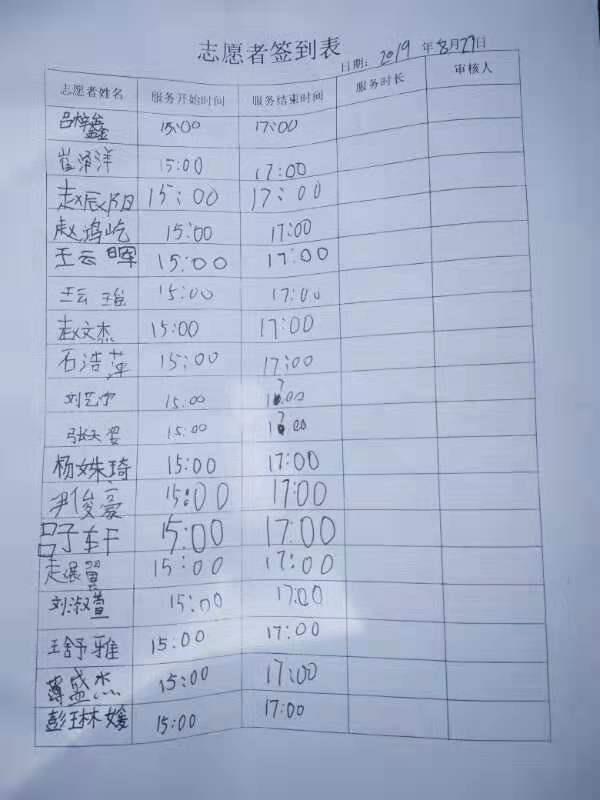 志愿者签到表
日期: 2019 年 8月27日
志愿者姓名 服务开始时间 服务结束时间 服务时长 审核人
吕梓鑫 15:00 17:00
肖泽洋 15:00 17:00
赵辰阳 15:00 17:00
赵鸿屹 15:00 17:00
王云晖 15:00 17:00
王云 15:00 17:00
赵文杰 15:00 17:00
石浩萍 15:00 17:00
刘艺 15:00
张天 15:00
杨姝琦 15:00 17:00
尹俊豪 15:00 17:00
吕子轩 15:00 17:00
翼 15:00 17:00
刘淑萱 15:00 17:00
王舒雅 15:00 17:00
盛杰 15:00 17:00
彭琳媛 15:00 17:00